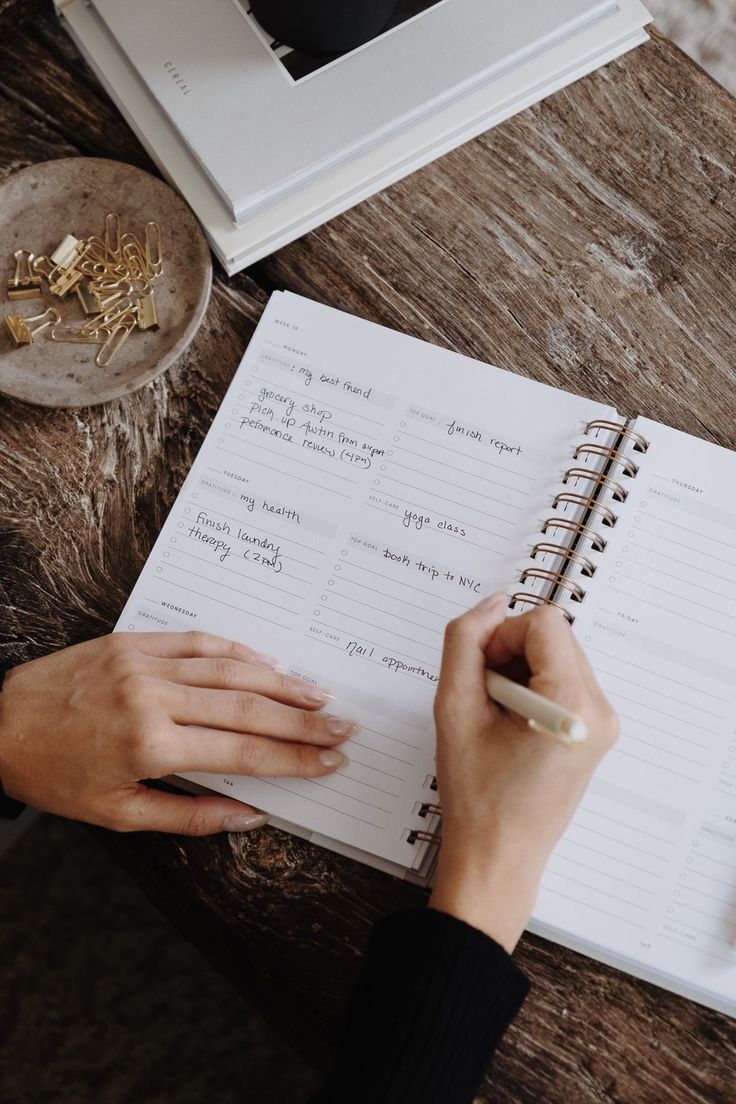 CEREAL
WEEK 19
MONDAY
GRATITUDE: my best friend
grocery shop
Pick up Austin from airport
Pefomance review (4PM)
TOP GOAL: finish report
SELF-CARE
yoga class
TUESDAY
GRATITUDE: my health
finish laundry
therapy (2PM)
TOP GOAL: book trip to NYC
SELF-CARE
nail appointment
WEDNESDAY
GRATITUDE
TOP GOAL
144
THURSDAY
GRATITUDE
FRIDAY
GRATITUDE
GRATITUDE
SELF-CARE